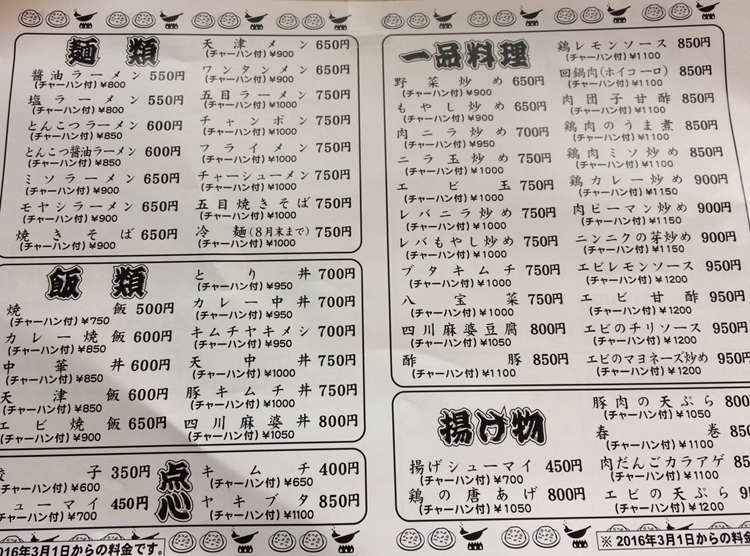 麺類
醤油ラーメン 550円
(チャーハン付) ¥800
塩ラーメン 550円
(チャーハン付) ¥800
とんこつラーメン 600円
(チャーハン付) ¥850
とんこつ醤油ラーメン 600円
(チャーハン付) ¥850
ミソラーメン 650円
(チャーハン付) ¥900
モヤシラーメン 650円
(チャーハン付) ¥900
焼きそば 650円
(チャーハン付) ¥900
天津メン 650円
(チャーハン付) ¥900
ワンタンメン 650円
(チャーハン付) ¥900
五目ラーメン 750円
(チャーハン付) ¥1000
チャンポン 750円
(チャーハン付) ¥1000
フライメン 750円
(チャーハン付) ¥1000
チャーシューメン 750円
(チャーハン付) ¥1000
五目焼きそば 750円
(チャーハン付) ¥1000
冷麺(8月末まで) 750円
(チャーハン付) ¥1000
飯類
焼飯 500円
(チャーハン付) ¥750
カレー焼飯 600円
(チャーハン付) ¥850
中華丼 600円
(チャーハン付) ¥850
天津飯 600円
(チャーハン付) ¥850
エビ焼飯 650円
(チャーハン付) ¥900
とり丼 700円
(チャーハン付) ¥950
カレー中丼 700円
(チャーハン付) ¥950
キムチヤキメシ 700円
(チャーハン付) ¥950
天中丼 750円
(チャーハン付) ¥1000
豚キムチ丼 750円
(チャーハン付) ¥1000
四川麻婆丼 800円
(チャーハン付) ¥1050
点心
子 350円
(チャーハン付) ¥600
ューマイ 450円
(チャーハン付) ¥700
キムチ 400円
(チャーハン付) ¥650
ヤキブタ 850円
(チャーハン付) ¥1100
016年3月1日からの料金です。
一品料理
野菜炒め 650円
(チャーハン付) ¥900
もやし炒め 650円
(チャーハン付) ¥900
肉ニラ炒め 700円
(チャーハン付) ¥950
ニラ玉炒め 750円
(チャーハン付) ¥1000
エビ玉 750円
(チャーハン付) ¥1000
レバニラ炒め 750円
(チャーハン付) ¥1000
レバもやし炒め 750円
(チャーハン付) ¥1000
ブタキムチ 750円
(チャーハン付) ¥1000
八宝菜 750円
(チャーハン付) ¥1000
四川麻婆豆腐 800円
(チャーハン付) ¥1050
酢豚 850円
(チャーハン付) ¥1100
鶏レモンソース 850円
(チャーハン付) ¥1100
回鍋肉(ホイコーロ) 850円
(チャーハン付) ¥1100
肉団子甘酢 850円
(チャーハン付) ¥1100
鶏肉のうま煮 850円
(チャーハン付) ¥1100
鶏肉ミソ炒め 850円
(チャーハン付) ¥1100
鶏カレー炒め 900円
(チャーハン付) ¥1150
肉ピーマン炒め 900円
(チャーハン付) ¥1150
ニンニクの芽炒め 900円
(チャーハン付) ¥1150
エビレモンソース 950円
(チャーハン付) ¥1200
エビ甘酢 950円
(チャーハン付) ¥1200
エビのチリソース 950円
(チャーハン付) ¥1200
エビのマヨネーズ炒め 950円
(チャーハン付) ¥1200
揚げ物
揚げシューマイ 450円
(チャーハン付) ¥700
鶏の唐あげ 800円
(チャーハン付) ¥1050
豚肉の天ぷら 800
(チャーハン付) ¥1050
春巻 850
(チャーハン付) ¥1100
肉だんごカラアゲ 850
(チャーハン付) ¥1100
エビの天ぷら 95
(チャーハン付) ¥1200
※2016年3月1日からの料金